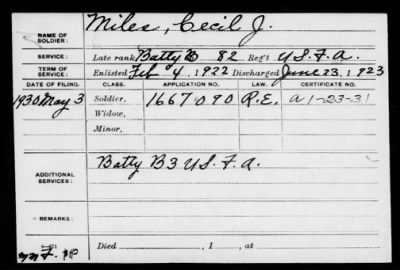 NAME OF SOLDIER: Miles, Cecil J.
SERVICE: Late rank, Batty B 82 Reg't U.S.F.A.
TERM OF SERVICE: Enlisted Feb 4, 1922 Discharged June 23, 1923
DATE OF FILING. CLASS. APPLICATION NO. LAW. CERTIFICATE NO.
1930 May 3 Soldier. 1667090 R.E. A 1-23-31
Widow,
Minor,
ADDITIONAL SERVICES: Batty B 3 U.S.F.A.
REMARKS:
Died , 1 , at